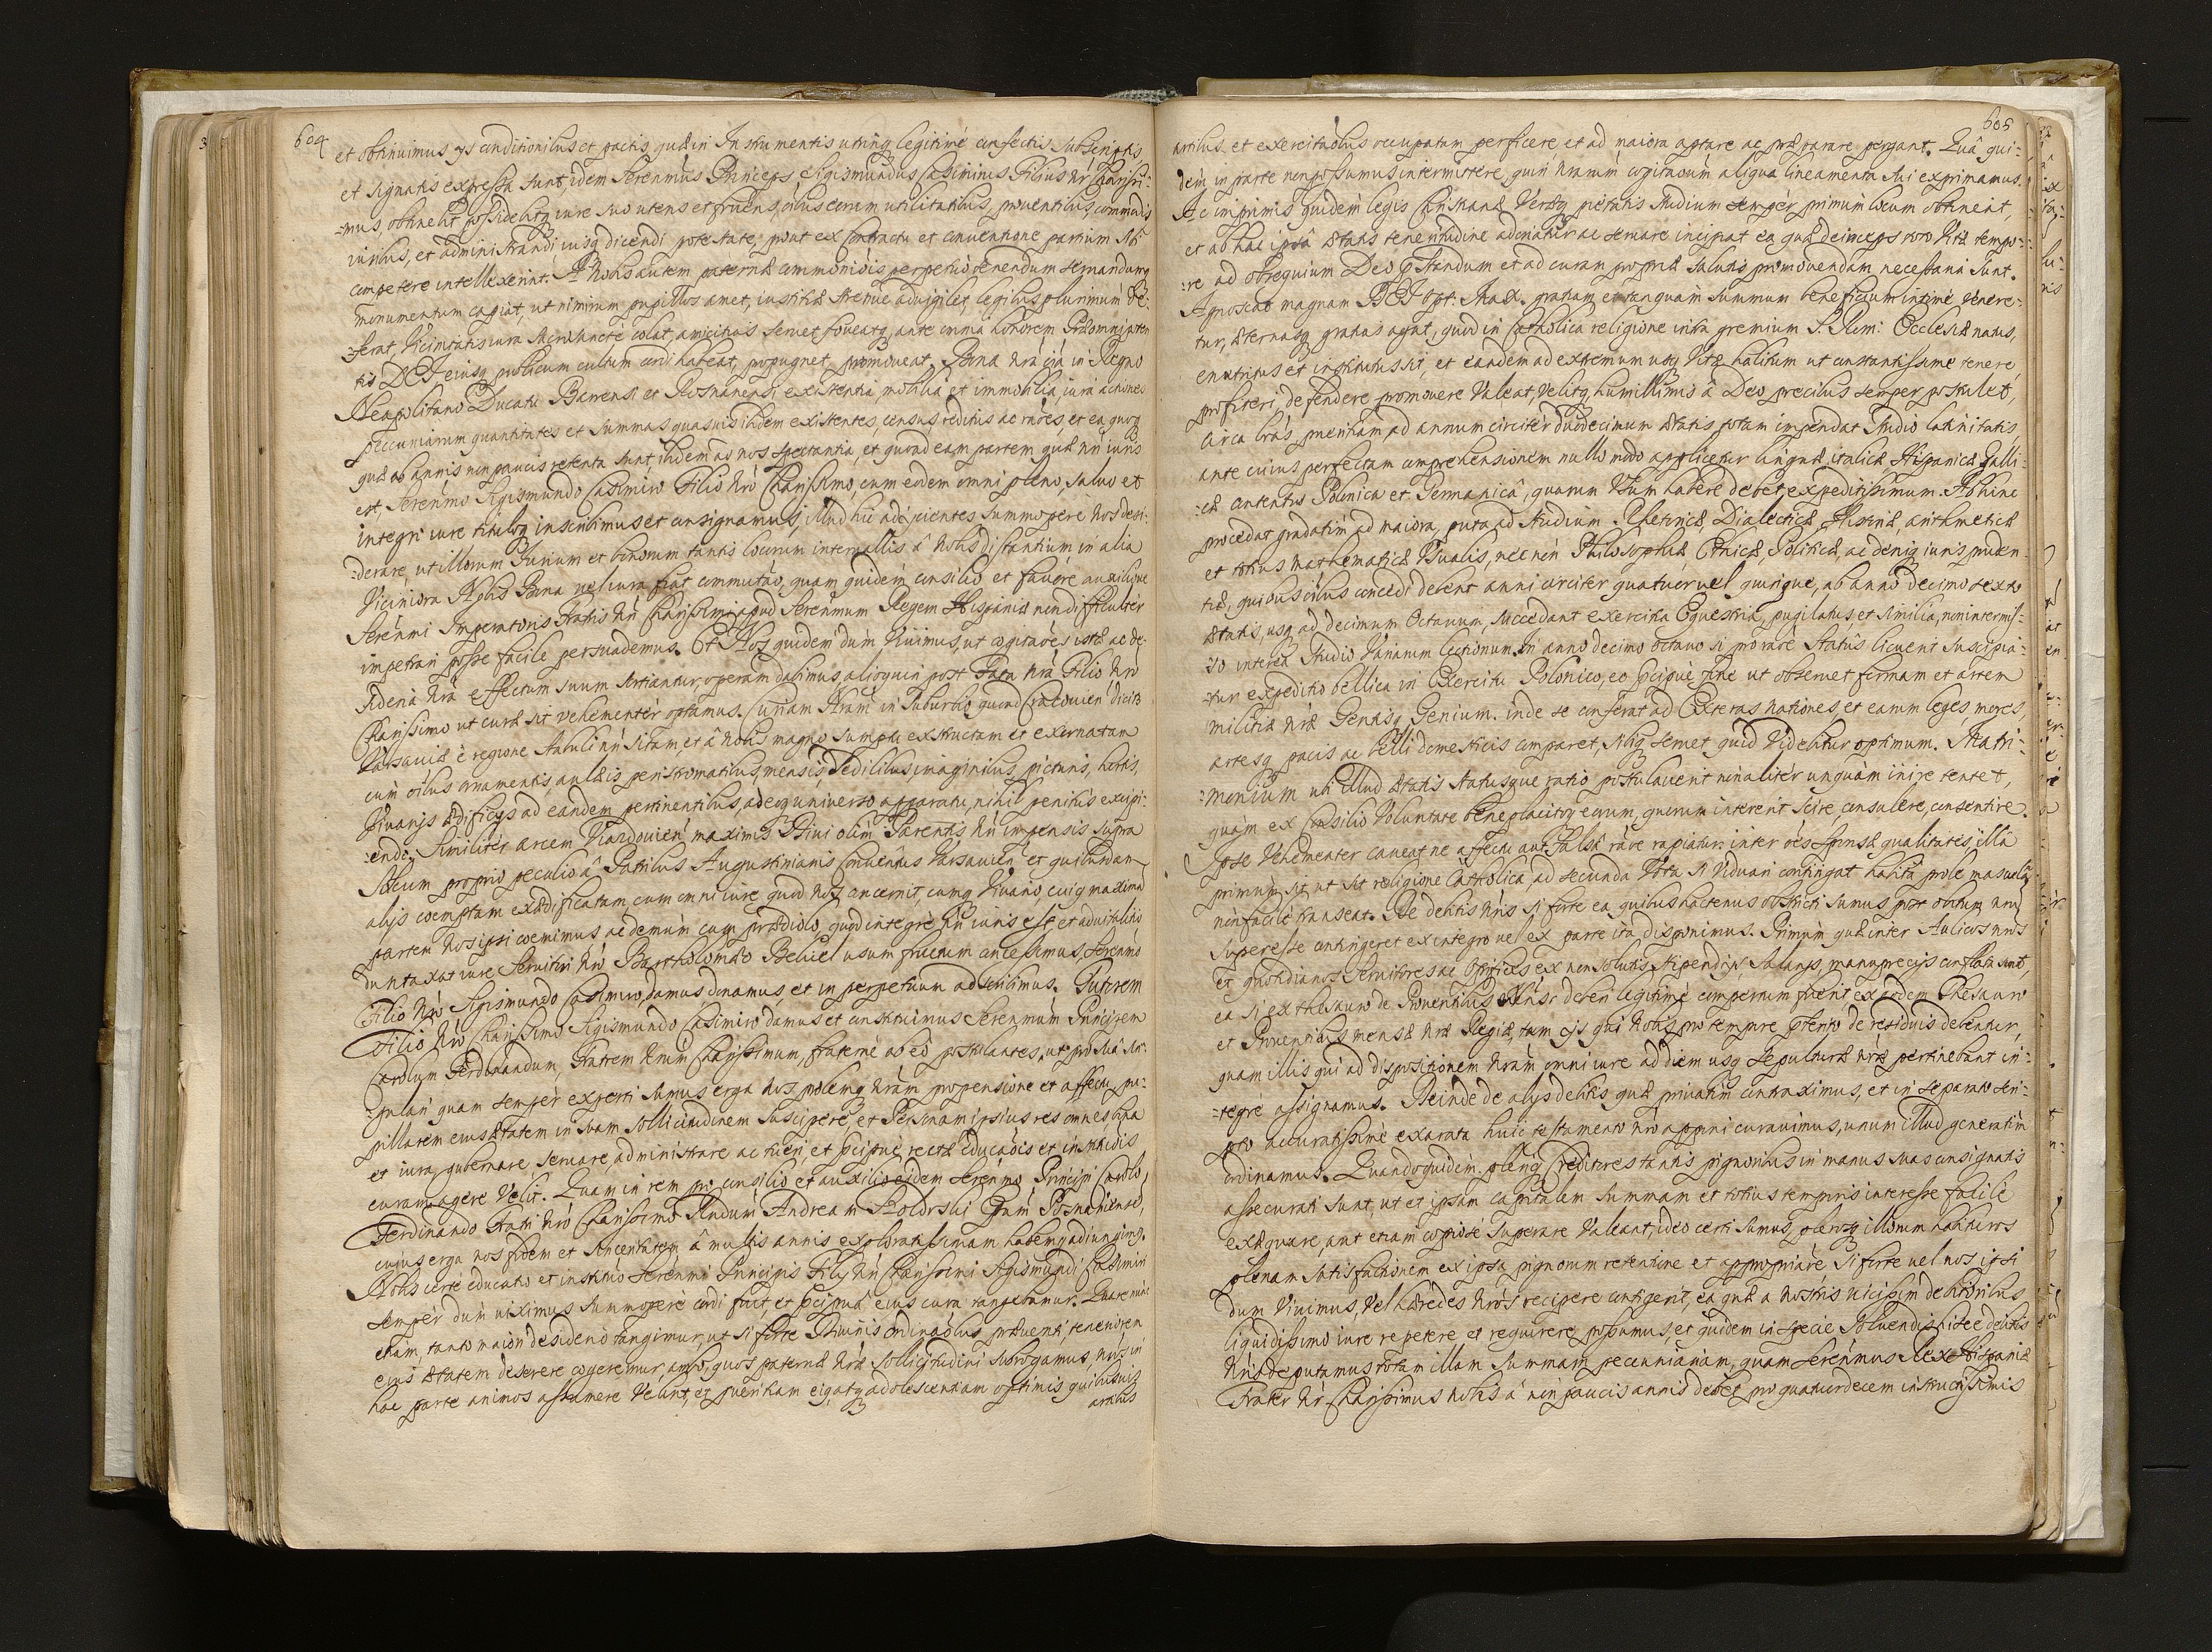 604
et obtinuimus ijs conditionibus et pactis, quæ in Instrumentis utrinq legitimé confectis Subscriptis
et signatis expressa sunt, idem Serenmus Princeps Sigismundus Casimirus Filius nr Charissi-
-mus obtineat possideatq, iure suo utens et fruens, oibus earum utilitatibus, proventibus, commodis
iuribus, et administrandi, iusq dicendi potestate, prout ex contractu et conventione partium sibi
competere intellexerint. A Nobis autem paternæ commonióis perpetuó tenendum servandumq
monumentum capiat, ut nimirum pupillos amet, iustitiæ strenue advigilet, legibus plurimum de-
-ferat, Vicinitatis iura sacrosancté colat, amicitias servet foveatq, ante omnia honorem Præomnipoten
tis DEI eiusq publicum cultum cordi habeat, propugnet, promoveat. Bona nrá oia in Regno
Neapolitano Ducatu Barensi et Rosnanensi existentia, mobilia et immobilia, iura actiones
peccuniarum quantitates et summas quasvis ibidem existentes, census, reditus ac raóes, et ea quoq
quæ ab annis non paucis retenta sunt, ibidem ad nos spectantia, et quoad eam partem quæ nri iuris
est Serenmo Sigismundo Casimiro Filio nró Charissimo, cum eodem omni pleno, salvo et
integri iure tituloq inscribimus et consignamus, illud hic adijcientes summopere nos desi-
-derare, ut illorum Iurium et bonorum tantis locorum intervallis â nobis distantium in alia
Viciniora Nobis Bona vel iura fiat commutáo, quam quidem consilio et favore auxilioque
Serenmi Imperatoris Fratris nri Charissimi apud Serenmum Regem Hispaniæ non difficulter
impetrari posse facile persuademus. Et Nos quidem dum Vivimus, ut cogitaóes istæ ac de-
sideria nrá effectum suum sortiantur, operam dabimus, alioquin post Fata nrá Filio nró
Charissimo ut curæ sit vehementér optamus. Curiam nram in Suburbio quod Cracovien dicitr
Varsaviæ é regione Stabuli nri sitam, et â nobis magno sumptu exstructam et exornatam
cum oibus ornamentis, aulæis, peristromatibus, mensis, sedilibus, imaginibus, picturis, hortis,
Vivarijs ædificijs ad eandem pertinentibus, adeoq universo apparatu, nihil penitus excipi-
-endo. Similiter arcem Viazdovien maximis Divi olim Parentis nri impensis supra
Solum proprio peculio â Patribus Augustinianis Conventus Varsavien et quibusdam
alijs coemptum exædificatam, cum omni iure quod nos concernit, cumq Vivario, cuiq maximá
partem nos ipsi coemimus ac demum cum prædiolo, quod integré nri iuris est et advitalitio
duntaxat iure Servitori nró Bartholomæo Belziel usum fructum concessimus, Serenmo
Filio nró Sigismundo Casimiro, damus, donamus, et in perpetuum adscribimus. Tutorem
Filio nró Charissimo Sigismundo Casimiro damus et constituimus Serenmum Principem
Carolum Ferdinandum, Fratrem nrum Charissimum, fraterné ab eo postulantes, ut pro suâ sin-
-gulari quam semper experti sumus erga nos prolemq nrám propensione et affectu pu-
pillarem eius ætatem in suam sollicitudinem suscipere, et Personam ipsius res omnes bona
et iura, gubernare, servare, administrare ac tueri, et præcipué rectæ educaóis et institóis
curam agere velit. Quam in rem pro consilio et auxilio eidem Serenmo Principi Carolo
Ferdinando Fratri nró Charissimo Rndum Andream Szoldrski Epúm Posnaniense,
cuius erga nos fidem et sinceritatem â multis annis exploratissimam habemq, adiungimus.
Nobis certé educatio et institutió Serenmi Principis Filij nri Charissimi Sigismundi Casimiri
semper dum viximus summopere cordi fuit, et præcipuâ eius cura tangebamur. Quare nunc
etiam, tanto maiori desiderio tangimur, ut si forte Divinis ordinaóibus præventi tenerióren
eius ætatem deserere cogeremur, ambo, quos paternæ nræ sollicitudini subrogamus, nris in
hac parte animos assumere velint, et pueritiam eig, atq adolescentiam optimis quibusvis
artibus
605
artibus et exercitaóibus occupatam perficere et ad maiora aptare ac præparare pergant. Quâ qui-
dem in parte non possumus intermittere, quin nrarum cogitaóum aliqua lineamenta sui exprimamus.
Ac imprimis quidem legis Christianæ Veræq pietatis studium semper primum locum obtineat,
et ab hac ipsâ ætatis teneritudine addiscatur ac servare incipiat ea quæ deinceps toto Vitæ tempo-
-re ad obsequium Deo præstandum et ad curam propriæ salutis promovendam necessaria sunt.
Agnoscat magnam DEI Opt: Max. gratiam et tanquam summum beneficium intimé venere-
tur, æternasq gratias agat, quod in Catholica religione intra gremium S. Rom: Ecclesiæ natus,
enutritus et institutus sit, et eandem ad extremum usq Vitæ halitum ut constantissime tenere,
profiteri, defendere promovere Valeat, velitq, humillimis â Deo precibus semper postulet,
Circa lrás pueritiam ad annum circiter duodecimum ætatis totam impendat studio latinitatis
ante cuius perfectam comprehensionem nullo modo applicetur linguæ italicæ, Hispanicæ, Galli-
-cæ contentus Polonica et Germanicâ, quarum Usum habere debet expeditissimum. Ab hinc
procedat gradatim ad maiora, puta ad studium Rhetoricæ, Dialecticæ, Historiæ, arithmeticæ
et totius mathematicæ Usualis, nec non Philosophiæ Ethicæ, Politicæ, ac deniq iurisprúden
tiæ, quibus oibus concedi debent anni circiter quatuor vel quinque, ab anno decimo sexto
ætatis, usq ad decimum Octavum, succedant exercitia Equestria, pugilatus, et similia, non intermis-
-so interea studio Variarum lectionum. In anno decimo octavo si pro raóe Statûs licuerit suscipia-
-tur expeditio bellica in Exercitu Polonico, eo præcipué fine ut observet formam et artem
militiæ nræ Gentisq Genium. inde se conferat ad Exteras nationes, et earum leges, mores,
artesq pacis ac belli domesticis comparet, sibiq servet quod Videbitur optimum. Matri-
-monium ubi illud ætatis statusque ratio postulaverit non aliter unquam inire tentet,
quam ex Consilio Voluntate beneplacitoq eorum, quorum intererit scire, consulere, consentire.
Ipse Vehementer caveat ne affectu aut falsâ raóe rapiatur: inter oés Sponsæ qualitates, illa
primum sit, ut sit religione Catholica, ad secunda Vota si Viduari contingat habita prole masculá
non facilé transeat. De debitis nris si forte ea quibus hactenus obstricti sumus post obitum nrum
superesse contingeret ex integro vel ex parte ita disponimus. Primum quæ inter Aulicos nros
et quotidianos Servitores ac Opifices ex non solutis stipendijs, Salarijs, manuprecijs conflata sunt,
ea si ex thesauro de Proventibus Mensæ deberi legitimé compertum fuerit ex eodem Thesauro
et Proventibus mensæ nræ Regiæ, tam ijs qui nobis pro tempore præsenti de residuis debentur,
quam illis qui ad dispositionem nrám omni iure ad diem usq sepulturæ nræ pertinebant in-
-tegre assignamus. Deinde de alijs debitis quæ privatim contraximus, et in separato scri-
pto accuratissime exarata huic testamento nró apponi curavimus, unum illud generatim
ordinamus. Quandoquidem pleriq Creditores tantis pignoribus in manus suas consignatis
assecurati sunt, ut et ipsam capitalem summam et totius temporis interesse facilé
exæquare, aut etiam copiosé superare Valeant, ideo certi sumus, plerosq illorum habituros
plenam satisfactionem ex ipsa pignorum retentione et appropriaóe. Si forte vel nos ipsi
dum Vivimus, vel hæredes nros recipere contigerit, ea quæ a nostris vicissim debitoribus
liquidissimo iure repetere et requirere possumus, et quidem in specie solvendis hisce debitis
nris deputamus totam illam summam pecuniariam, quam Serenmus Rex Hispaniæ
Frater nr Charissimus nobis â non paucis annis debet, pro quatuordecim instructissimis